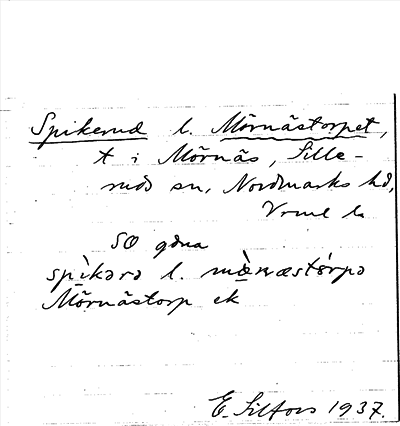 Spikerud l. Mörnästorpet,
t i Mörnäs, Sille-
ruds sn, Nordmarks hd,
Vrml l.
SO gdna
spìkərə l. mö̀ṇæstórpə
Mörnästorp ek
E. Silfors 1937.